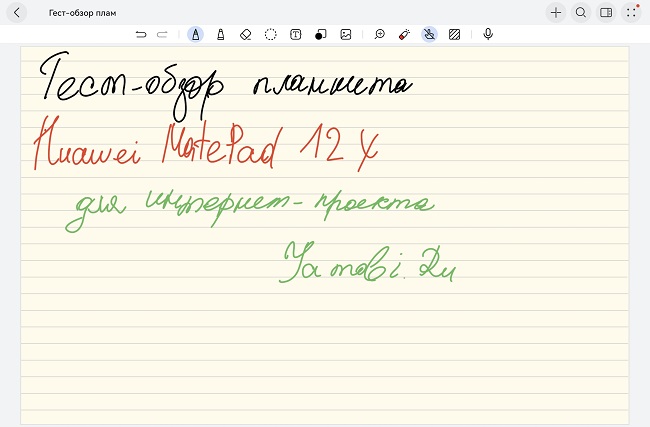 Гест-обзор плам
Тест-обзор планшета
Huawei MatePad 12 X
для интернет-проекта
Yamobi.Ru